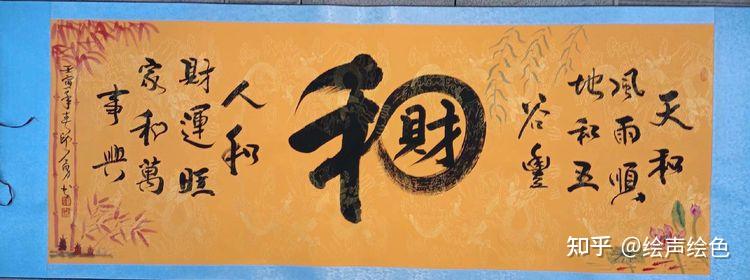 天和
風雨順
地和五
谷豐
和
財
人和
財運旺
家和萬
事興
壬寅年
知乎 @绘声绘色